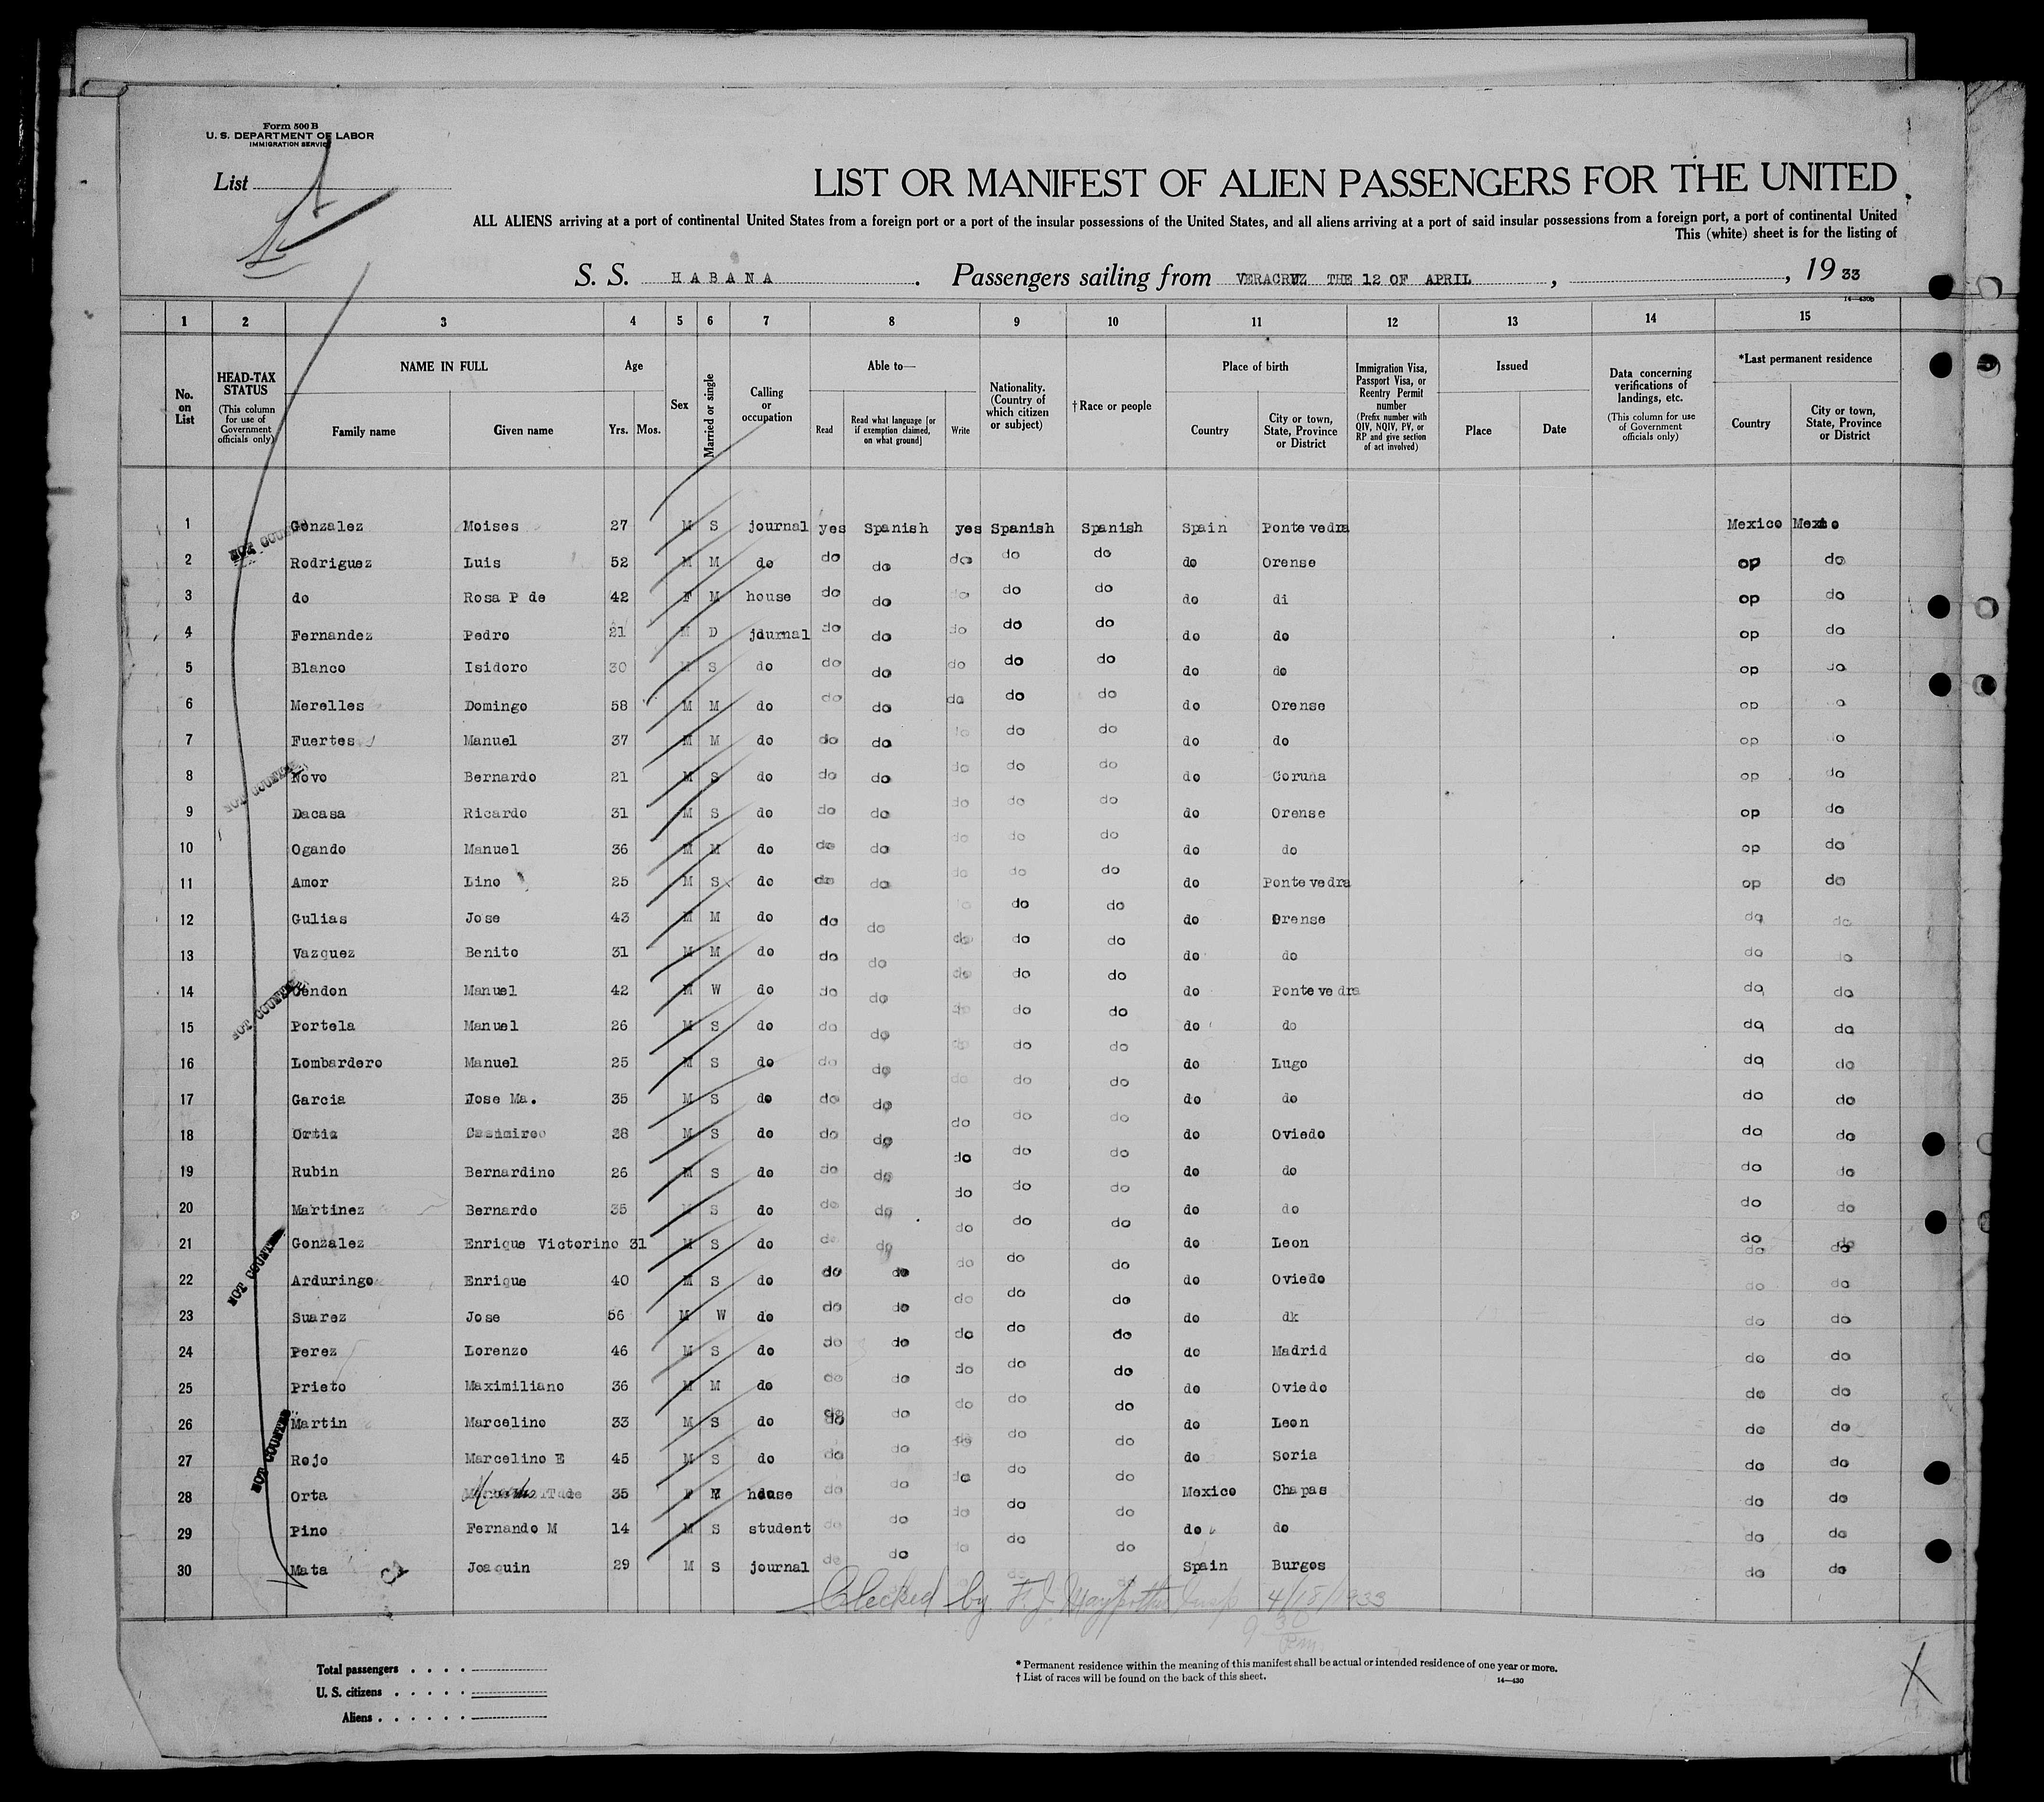 Form 500 B
U. S. DEPARTMENT OF LABOR
IMMIGRATION SERVICE
List
LIST OR MANIFEST OF ALIEN PASSENGERS FOR THE UNITED
ALL ALIENS arriving at a port of continental United States from a foreign port or a port of the insular possessions of the United States, and all aliens arriving at a port of said insular possessions from a foreign port, a port of continental United
This (white) sheet is for the listing of
S. S. HABANA. Passengers sailing from VERACRUZ THE 12 OF APRIL, , 19 33
14—430b
1 2 3 4 5 6 7 8 9 10 11 12 13 14 15
No. on List
HEAD-TAX STATUS (This column for use of Government officials only)
NAME IN FULL
Family name Given name
Age
Yrs. Mos.
Sex
Married or single
Calling or occupation
Able to—
Read
Read what language [or if exemption claimed, on what ground]
Write
Nationality. (Country of which citizen or subject)
†Race or people
Place of birth
Country
City or town, State, Province or District
Immigration Visa, Passport Visa, or Reentry Permit number (Prefix number with QIV, NQIV, PV, or RP and give section of act involved)
Issued
Place Date
Data concerning verifications of landings, etc. (This column for use of Government officials only)
*Last permanent residence
Country
City or town, State, Province or District
1 Gonzalez Moises 27 M S journal yes Spanish yes Spanish Spanish Spain Pontevedra Mexico Mexico
2 Rodriguez Luis 52 M M do do do do do do do Orense op do
3 do Rosa P de 42 F M house do do do do do do di op do
4 Fernandez Pedro 21 M D journal do do do do do do do op do
5 Blanco Isidoro 30 M S do do do do do do do do op do
6 Merelles Domingo 58 M M do do do do do do do Orense op o
7 Fuertes Manuel 37 M M do do do do do do do do op do
8 Novo Bernardo 21 M S do do do do do do do Coruña op do
9 Dacasa Ricardo 31 M S do do do do do do do Orense op do
10 Ogando Manuel 36 M M do do do do do do do do op do
11 Amor Lino 25 M S do do do do do do do Pontevedra op do
12 Gulias Jose 43 M M do do do do do do do Orense do do
13 Vazquez Benito 31 M M do do do do do do do do do do
14 Cendon Manuel 42 M W do do do do do do do Pontevedra do do
15 Portela Manuel 26 M S do do do do do do do do do do
16 Lombardero Manuel 25 M S do do do do do do do Lugo do do
17 Garcia Jose Ma. 35 M S do do do do do do do do do do
18 Ortiz Casimiro 38 M S do do do do do do do Oviedo do do
19 Rubin Bernardino 26 M S do do do do do do do do do do
20 Martinez Bernardo 35 M S do do do do do do do do do do
21 Gonzalez Enrique Victorino 31 M S do do do do do do do Leon do do
22 Arduringo Enrique 40 M S do do do do do do do Oviedo do do
23 Suarez Jose 56 M W do do do do do do do dk do do
24 Perez Lorenzo 46 M S do do do do do do do Madrid do do
25 Prieto Maximiliano 36 M M do do do do do do do Oviedo do do
26 Martin Marcelino 33 M S do do do do do do do Leon do do
27 Rojo Marcelino E 45 M S do do do do do do do Soria do do
28 Orta 35 F house do do do do do Mexico Chapas do do
29 Pino Fernando M 14 M S student do do do do do do do do do
30 Mata Joaquin 29 M S journal do do do do do Spain Burgos do do
NOT COUNTED
NOT COUNTED
NOT COUNTED
NOT COUNTED
NOT COUNTED
Checked by F. J. Insp 4/18/1933
9 30 Pm.
Total passengers
U. S. citizens
Aliens
* Permanent residence within the meaning of this manifest shall be actual or intended residence of one year or more.
† List of races will be found on the back of this sheet.
14—430
X